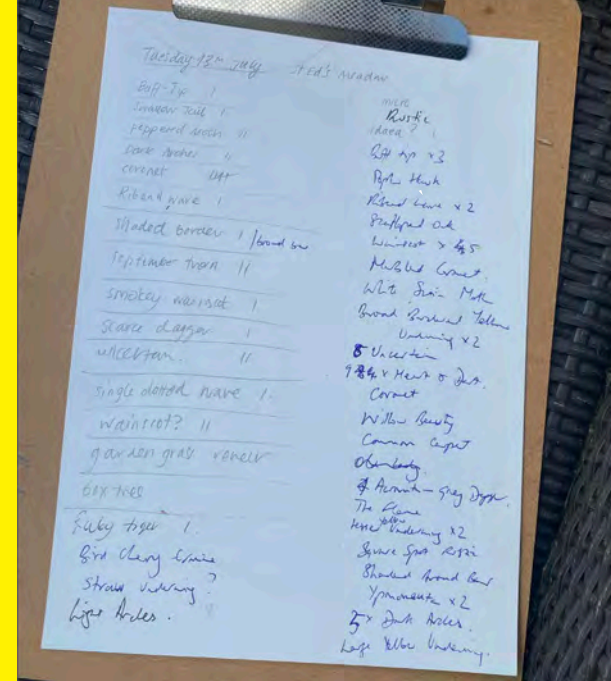 Tuesday 12th July St Ed's Meadow
Buff-Tip 1
Swallow Tail 1
peppered moth 11
Dark Arches
coronet
Riband wave 1
Shaded border 1 / broad bar
September thorn 11
smokey wainscot 1.
scarce dagger 1
uncertain. 11
single dotted wave 1.
wainscot? 11
garden grass veneer
box tree
Ruby tiger 1.
Bird Cherry Ermine
Straw Underwing?
Light Arches.
micro
Rustic
Buff tip x3
Poplar Hawk
Riband Wave x 2
Scalloped Oak
Wainscot x 5
Marbled Coronet.
White Satin Moth
Broad Bordered Yellow
Underwing x2
Uncertain
x Heart & Dart.
Coronet
Willow Beauty
Common Carpet
Acronicta - Grey Dagger.
The Flame
Yellow
Underwing x2
Square Spot Rustic
Shaded Broad Bar
Yponomeuta x2
5 x Dark Arches.
Large Yellow Underwing.